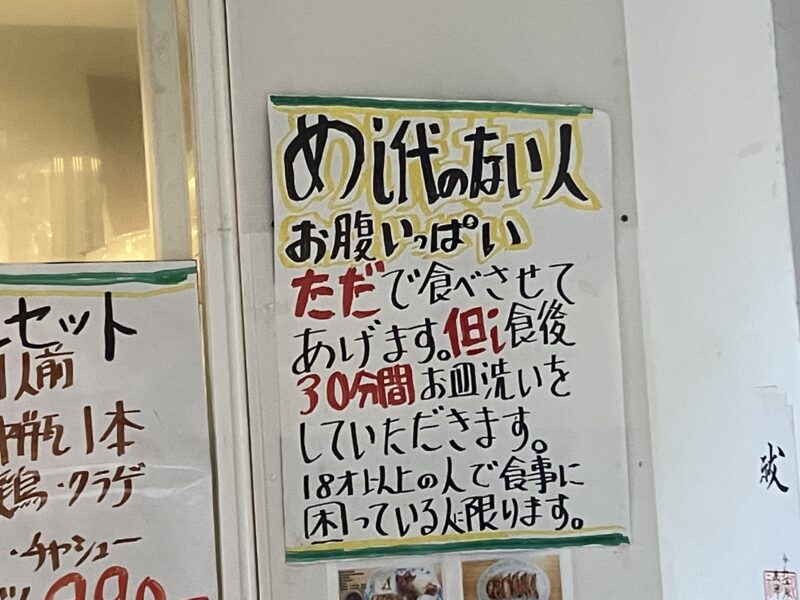 めし代のない人
お腹いっぱい
ただで食べさせて
あげます。但し食後
30分間お皿洗いを
していただきます。
18才以上の人で食事に
困っている人に限ります。
セット
1人前
瓶1本
鶏・クラゲ
・チャシュー
990